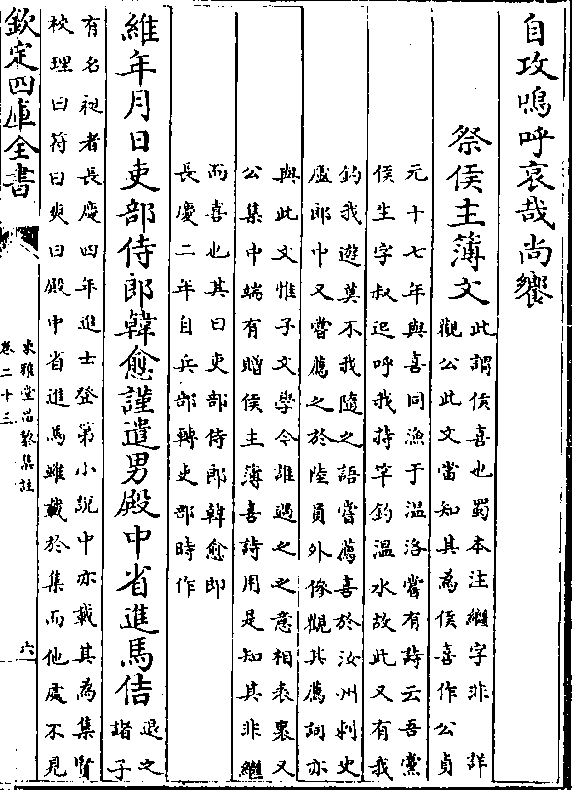 自攻嗚呼哀哉尚饗
祭侯主簿文
此謂侯喜也蜀本注繼字非詳
觀公此文當知其為侯喜作公貞
元十七年與喜同漁于溫洛嘗有詩云吾黨
侯生字叔𧺆呼我持竿釣溫水故此文有我
釣我遊莫不我隨之語嘗薦喜於汝州刺史
盧郎中又嘗薦之於陸員外傪觀其薦詞亦
與此文惟子文學今誰過之之意相表裏又
公集中端有贈侯主簿喜詩用是知其非繼
而喜也其曰吏部侍郎韓愈即
長慶二年自兵部轉吏部時作
維年月日吏部侍郎韓愈謹遣男殿中省進馬佶
退之
諸子
有名昶者長慶四年進士登第小說中亦載其為集賢
校理曰符曰爽曰殿中省進馬雖載於集而他處不見
欽定四庫全書
東雅堂昌黎集註
卷二十三
六